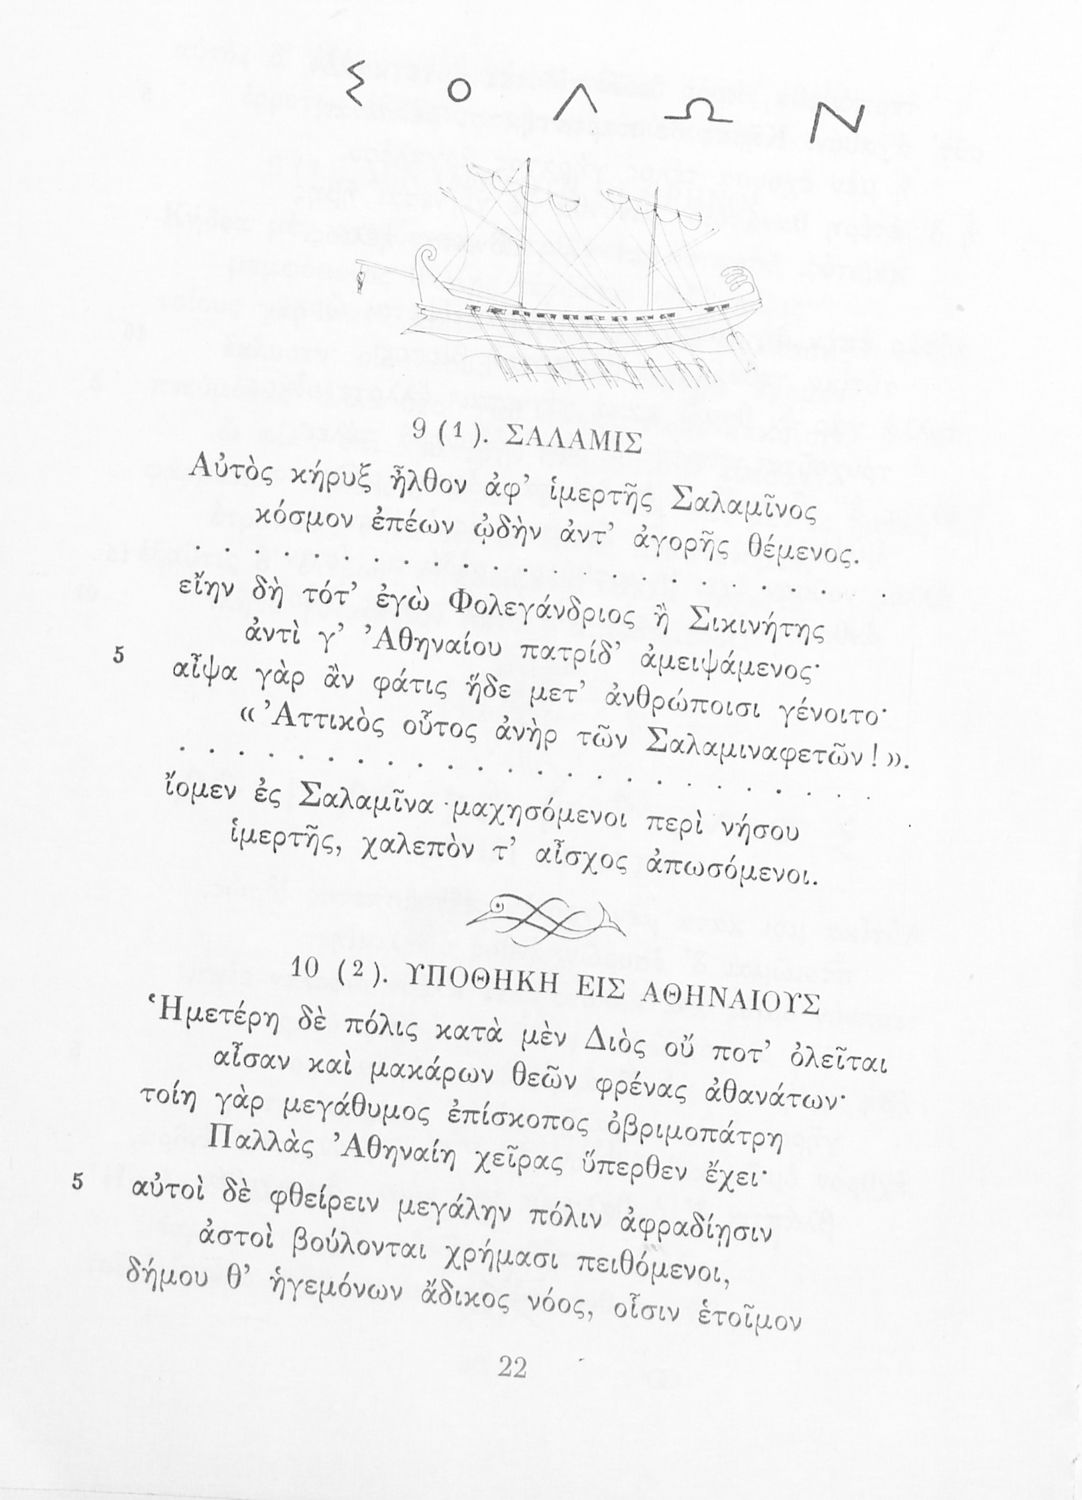 ΣΟΛΩΝ
9 (1). ΣΑΛΑΜΙΣ
Αὐτὸς κήρυξ ἦλθον ἀφ’ ἱμερτῆς Σαλαμῖνος
κόσμον ἐπέων ᾠδὴν ἀντ’ ἀγορῆς θέμενος.
. . . . . . . . . . . . . . . . . . . . . . . .
εἴην δὴ τότ’ ἐγὼ Φολεγάνδριος ἢ Σικινήτης
ἀντὶ γ’ Ἀθηναίου πατρίδ’ ἀμειψάμενος·
5 αἶψα γὰρ ἂν φάτις ἥδε μετ’ ἀνθρώποισι γένοιτο·
«Ἀττικὸς οὗτος ἀνὴρ τῶν Σαλαμιναφετῶν!».
. . . . . . . . . . . . . . . . . . . . . . . .
ἴομεν ἐς Σαλαμῖνα μαχησόμενοι περὶ νήσου
ἱμερτῆς, χαλεπὸν τ’ αἶσχος ἀπωσόμενοι.
10 (2). ΥΠΟΘΗΚΗ ΕΙΣ ΑΘΗΝΑΙΟΥΣ
Ἡμετέρη δὲ πόλις κατὰ μὲν Διὸς οὔ ποτ’ ὀλεῖται
αἶσαν καὶ μακάρων θεῶν φρένας ἀθανάτων·
τοίη γὰρ μεγάθυμος ἐπίσκοπος ὀβριμοπάτρη
Παλλὰς Ἀθηναίη χεῖρας ὕπερθεν ἔχει·
5 αὐτοὶ δὲ φθείρειν μεγάλην πόλιν ἀφραδίῃσιν
ἀστοὶ βούλονται χρήμασι πειθόμενοι,
δήμου θ’ ἡγεμόνων ἄδικος νόος, οἷσιν ἑτοῖμον
22